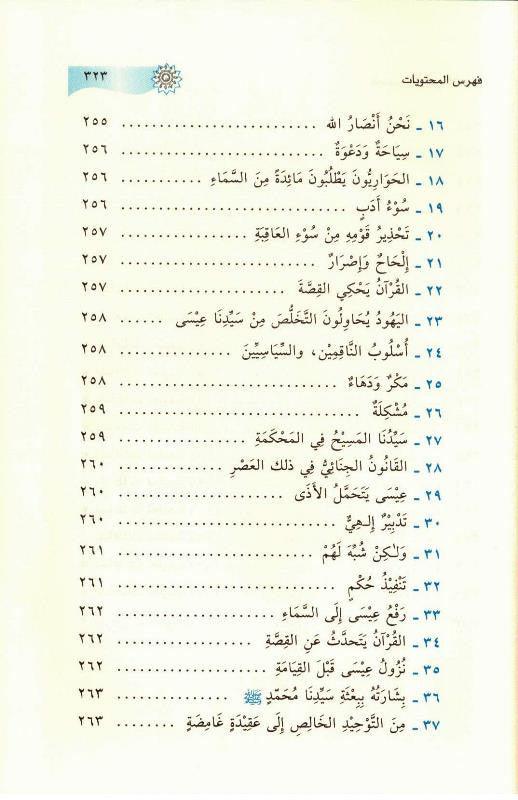 فهرس المحتويات ٣٢٣
١٦ ـ نَحْنُ أَنْصَارُ الله .......................... ٢٥٥
١٧ ـ سِيَاحَةٌ وَدَعْوَةٌ ........................... ٢٥٦
١٨ ـ الحَوَارِيُّونَ يَطْلُبُونَ مَائِدَةً مِنَ السَّمَاءِ ........... ٢٥٦
١٩ ـ سُوْءُ أَدَبٍ .............................. ٢٥٦
٢٠ ـ تَحْذِيرُ قَوْمِهِ مِنْ سُوْءِ العَاقِبَةِ ................. ٢٥٧
٢١ ـ إِلْحَاحٌ وَإِصْرَارٌ .......................... ٢٥٧
٢٢ ـ القُرْآنُ يَحْكِي القِصَّةَ ...................... ٢٥٧
٢٣ ـ اليَهُودُ يُحَاوِلُونَ التَّخَلُّصَ مِنْ سَيِّدِنَا عِيْسَى ...... ٢٥٨
٢٤ ـ أُسْلُوبُ النَّاقِمِيْنَ، والسِّيَاسِيِّينَ ............... ٢٥٨
٢٥ ـ مَكْرٌ وَدَهَاءٌ ............................. ٢٥٨
٢٦ ـ مُشْكِلَةٌ ................................ ٢٥٩
٢٧ ـ سَيِّدُنَا المَسِيْحُ فِي المَحْكَمَةِ ................. ٢٥٩
٢٨ ـ القَانُونُ الجِنَائِيُّ فِي ذلك العَصْرِ .............. ٢٦٠
٢٩ ـ عِيْسَى يَتَحَمَّلُ الأَذَى ...................... ٢٦٠
٣٠ ـ تَدْبِيْرٌ إِلـهِيٌّ ............................. ٢٦٠
٣١ ـ وَلـٰكِنْ شُبِّهَ لَهُمْ .......................... ٢٦١
٣٢ ـ تَنْفِيْذُ حُكْمٍ ............................. ٢٦١
٣٣ ـ رَفْعُ عِيْسَى إِلَى السَّمَاءِ ..................... ٢٦٢
٣٤ ـ القُرْآنُ يَتَحَدَّثُ عَنِ القِصَّةِ .................. ٢٦٢
٣٥ ـ نُزُولُ عِيْسَى قَبْلَ القِيَامَةِ ................... ٢٦٢
٣٦ ـ بِشَارَتُهُ بِبِعْثَةِ سَيِّدِنَا مُحَمَّدٍ ﷺ ............... ٢٦٣
٣٧ ـ مِنَ التَّوْحِيْدِ الخَالِصِ إِلَى عَقِيْدَةٍ غَامِضَةٍ ........ ٢٦٣